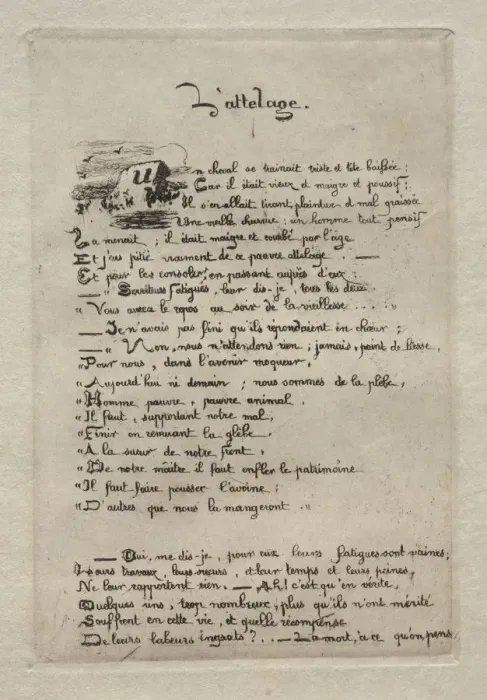 L'attelage.
Un cheval se trainait triste et tête baissée ;
Car il était vieux et maigre et poussif ;
Il s'en allait tirant, plaintive et mal graissée
Une vieille charrue ; un homme tout pensif
La menait ; il était maigre et courbé par l'âge
Et j'eus pitié vraiment de ce pauvre attelage . . —
Et pour les consoler, en passant auprès d'eux :
— " Serviteurs fatigués, leur dis-je, tous les deux
" Vous aurez le repos au soir de la vieillesse . . . : "
— Je n'avais pas fini qu'ils répondaient en chœur ;
— " Non, nous n'attendons rien ; jamais, point de liesse,
" Pour nous, dans l'avenir moqueur,
" Aujourd'hui ni demain ; nous sommes de la plèbe,
" Homme pauvre, pauvre animal,
" Il faut, supportant notre mal,
" Finir en remuant la glèbe.
" A la sueur de notre front,
" De notre maître il faut enfler le patrimoine
" Il faut faire pousser l'avoine ;
" D'autres que nous la mangeront . "
— Oui, me dis-je, pour eux leurs fatigues sont vaines ;
Leurs travaux, leurs sueurs, et leur temps et leurs peines,
Ne leur rapportent rien. — Ah! c'est qu'en vérité,
Quelques uns, trop nombreux, plus qu'ils n'ont mérité.
Souffront en cette vie, et quelle récompense
De leurs labeurs ingrats ? . . — La mort, à ce qu'on pense